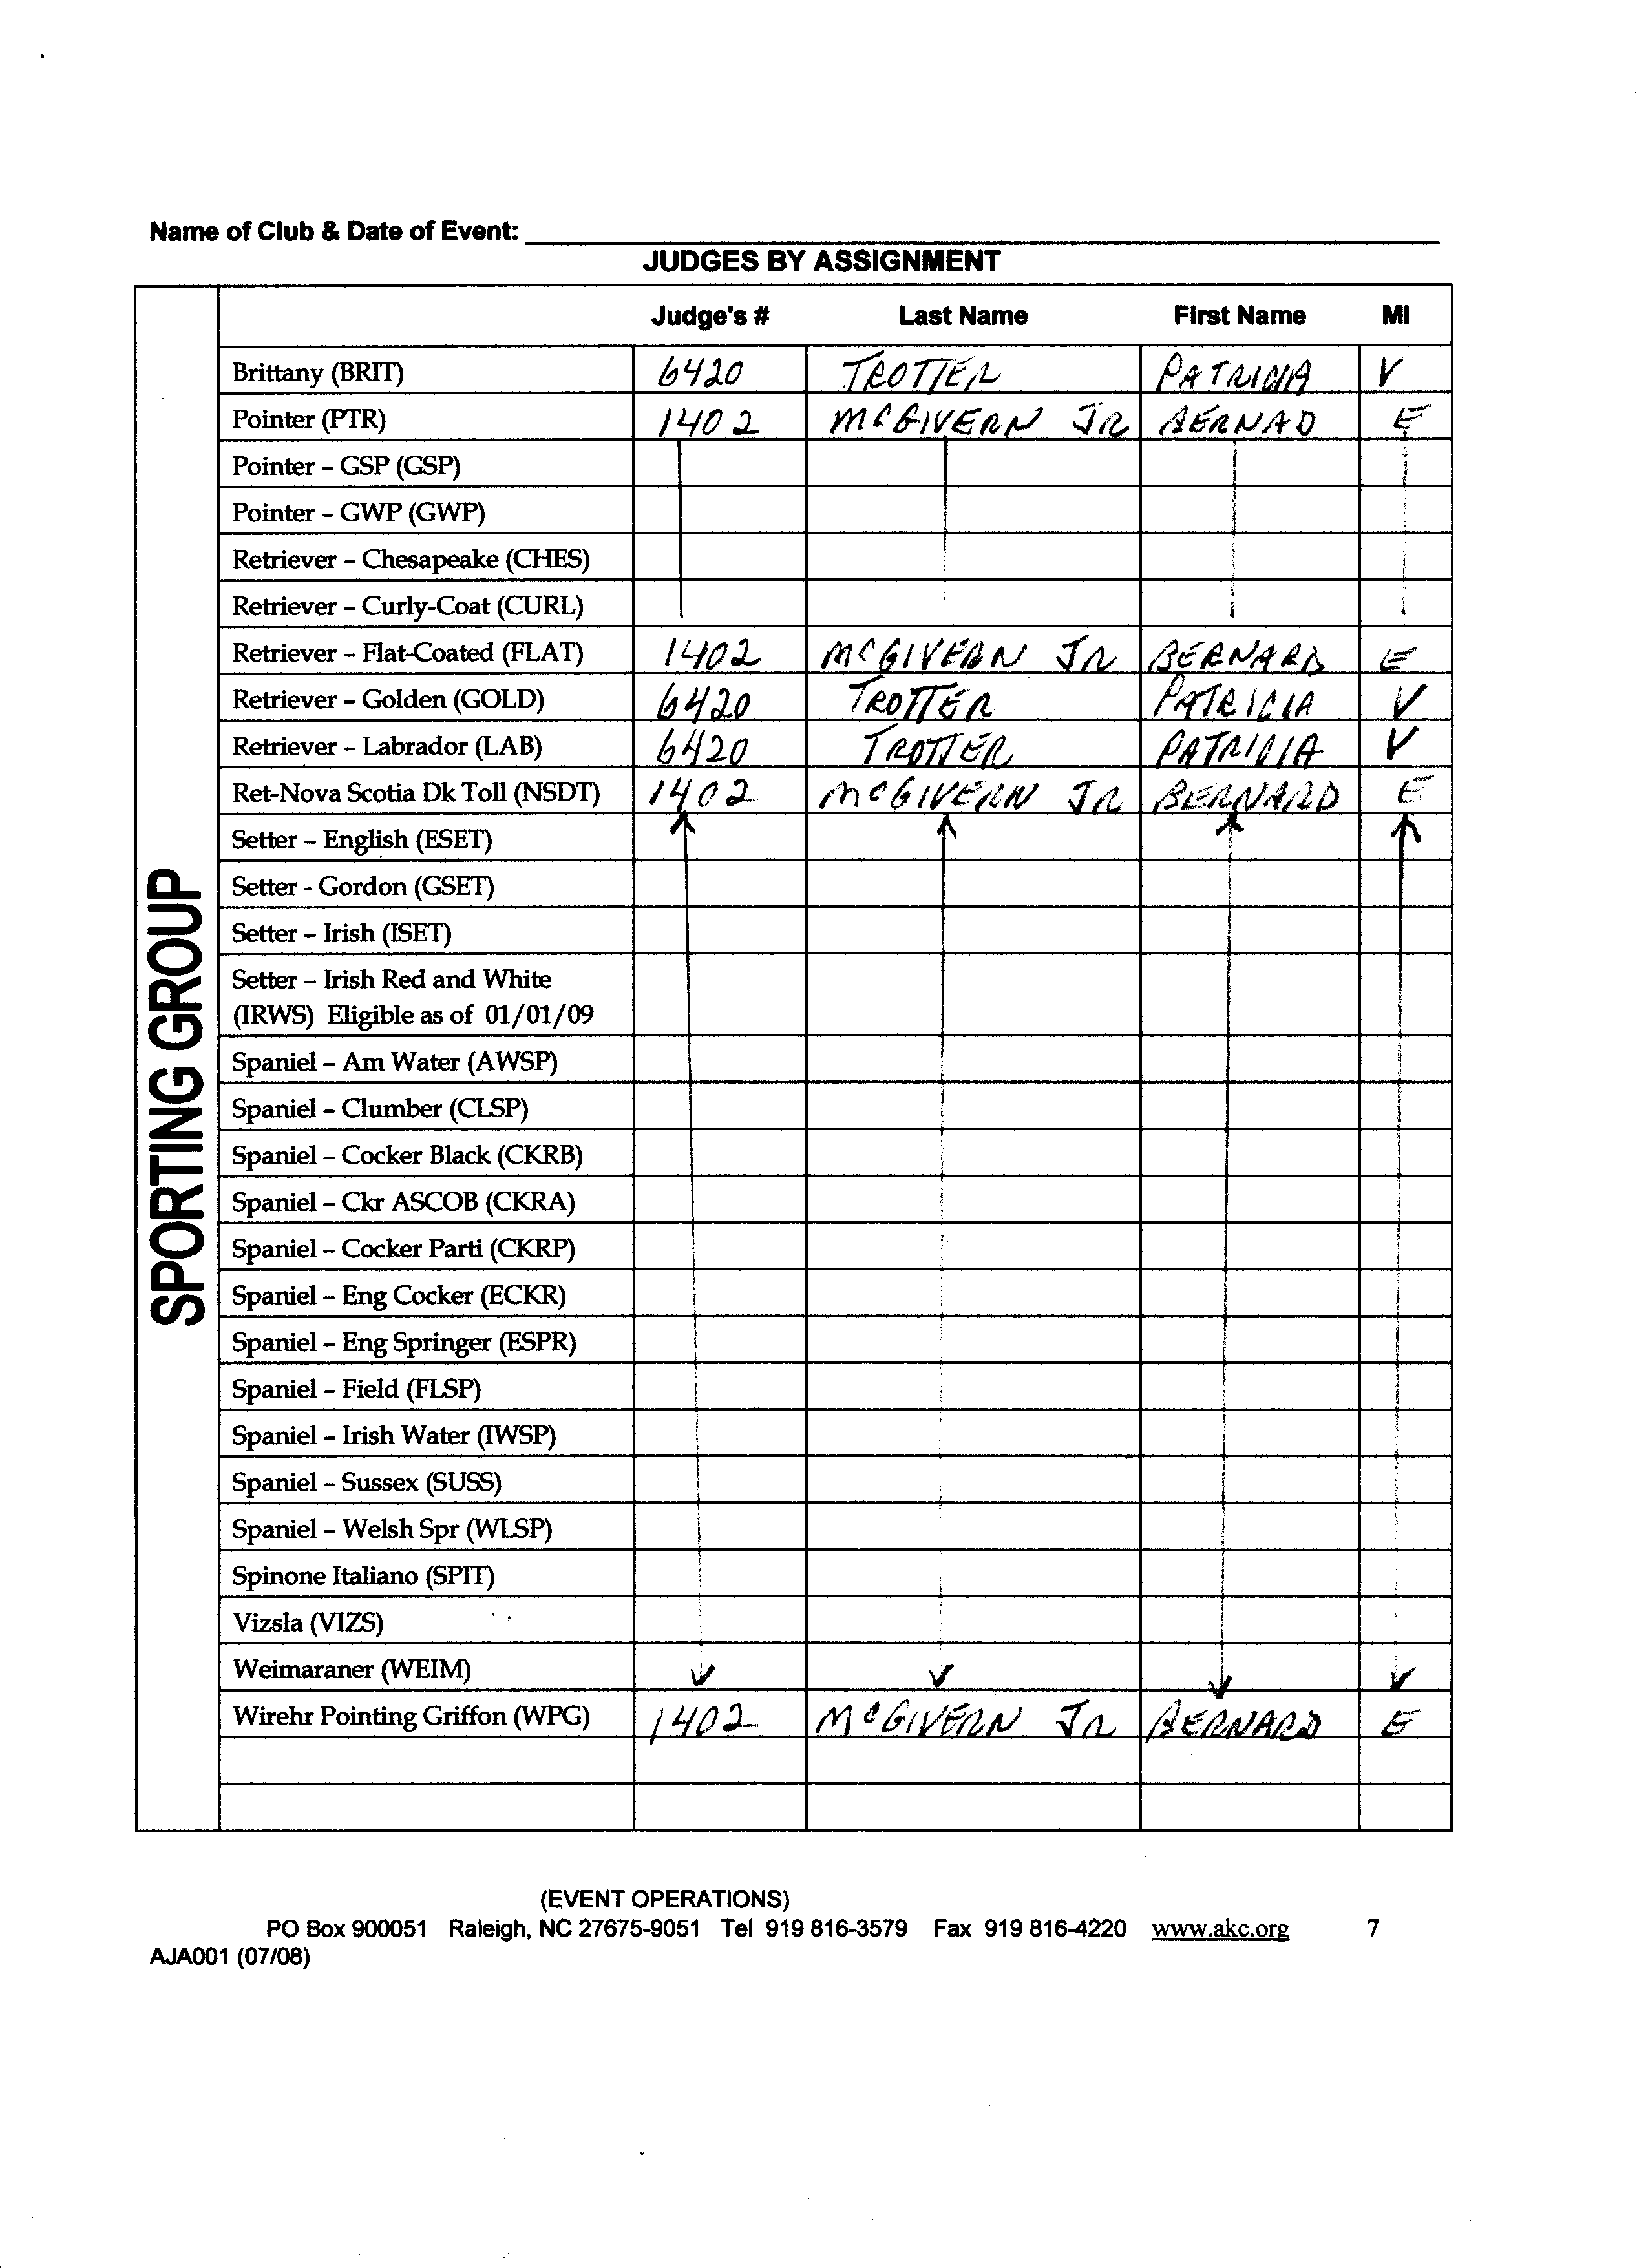 Name of Club & Date of Event:
JUDGES BY ASSIGNMENT
Judge's # Last Name First Name MI
Brittany (BRIT) 6420 TROTTER PATRICIA V
Pointer (PTR) 1402 MCGIVERN JR BERNAD E
Pointer – GSP (GSP)
Pointer – GWP (GWP)
Retriever – Chesapeake (CHES)
Retriever – Curly-Coat (CURL)
Retriever – Flat-Coated (FLAT) 1402 MCGIVERN JR BERNARD E
Retriever – Golden (GOLD) 6420 TROTTER PATRICIA V
Retriever – Labrador (LAB) 6420 TROTTER PATRICIA V
Ret-Nova Scotia Dk Toll (NSDT) 1402 MCGIVERN JR BERNARD E
Setter – English (ESET)
Setter - Gordon (GSET)
Setter – Irish (ISET)
Setter – Irish Red and White
(IRWS) Eligible as of 01/01/09
Spaniel – Am Water (AWSP)
Spaniel – Clumber (CLSP)
Spaniel – Cocker Black (CKRB)
Spaniel – Ckr ASCOB (CKRA)
Spaniel – Cocker Parti (CKRP)
Spaniel – Eng Cocker (ECKR)
Spaniel – Eng Springer (ESPR)
Spaniel – Field (FLSP)
Spaniel – Irish Water (IWSP)
Spaniel – Sussex (SUSS)
Spaniel – Welsh Spr (WLSP)
Spinone Italiano (SPIT)
Vizsla (VIZS)
Weimaraner (WEIM)
Wirehr Pointing Griffon (WPG) 1402 MCGIVERN JR BERNARD E
SPORTING GROUP
(EVENT OPERATIONS)
PO Box 900051 Raleigh, NC 27675-9051 Tel 919 816-3579 Fax 919 816-4220 www.akc.org 7
AJA001 (07/08)